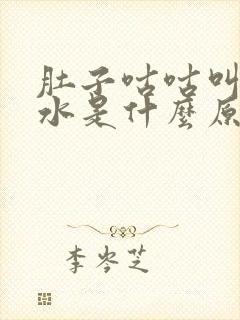 肚子咕咕叫
水是什麼原
李岑芝